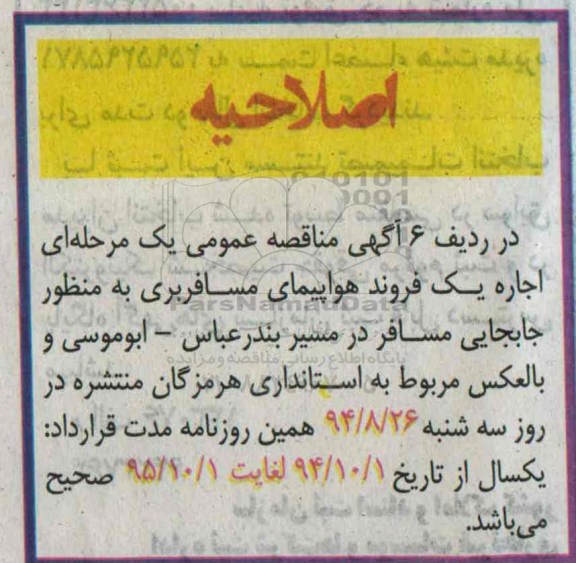 اصلاحیه
در ردیف ۶ آگهی مناقصه عمومی یک مرحله‌ای
اجاره یک فروند هواپیمای مسافربری به منظور
جابجایی مسافر در مسیر بندرعباس – ابوموسی و
بالعکس مربوط به استانداری هرمزگان منتشره در
روز سه شنبه ۹۴/۸/۲۶ همین روزنامه مدت قرارداد:
یکسال از تاریخ ۹۴/۱۰/۱ لغایت ۹۵/۱۰/۱ صحیح
می‌باشد.
ParsNamadData
پایگاه اطلاع رسانی مناقصه و مزایده